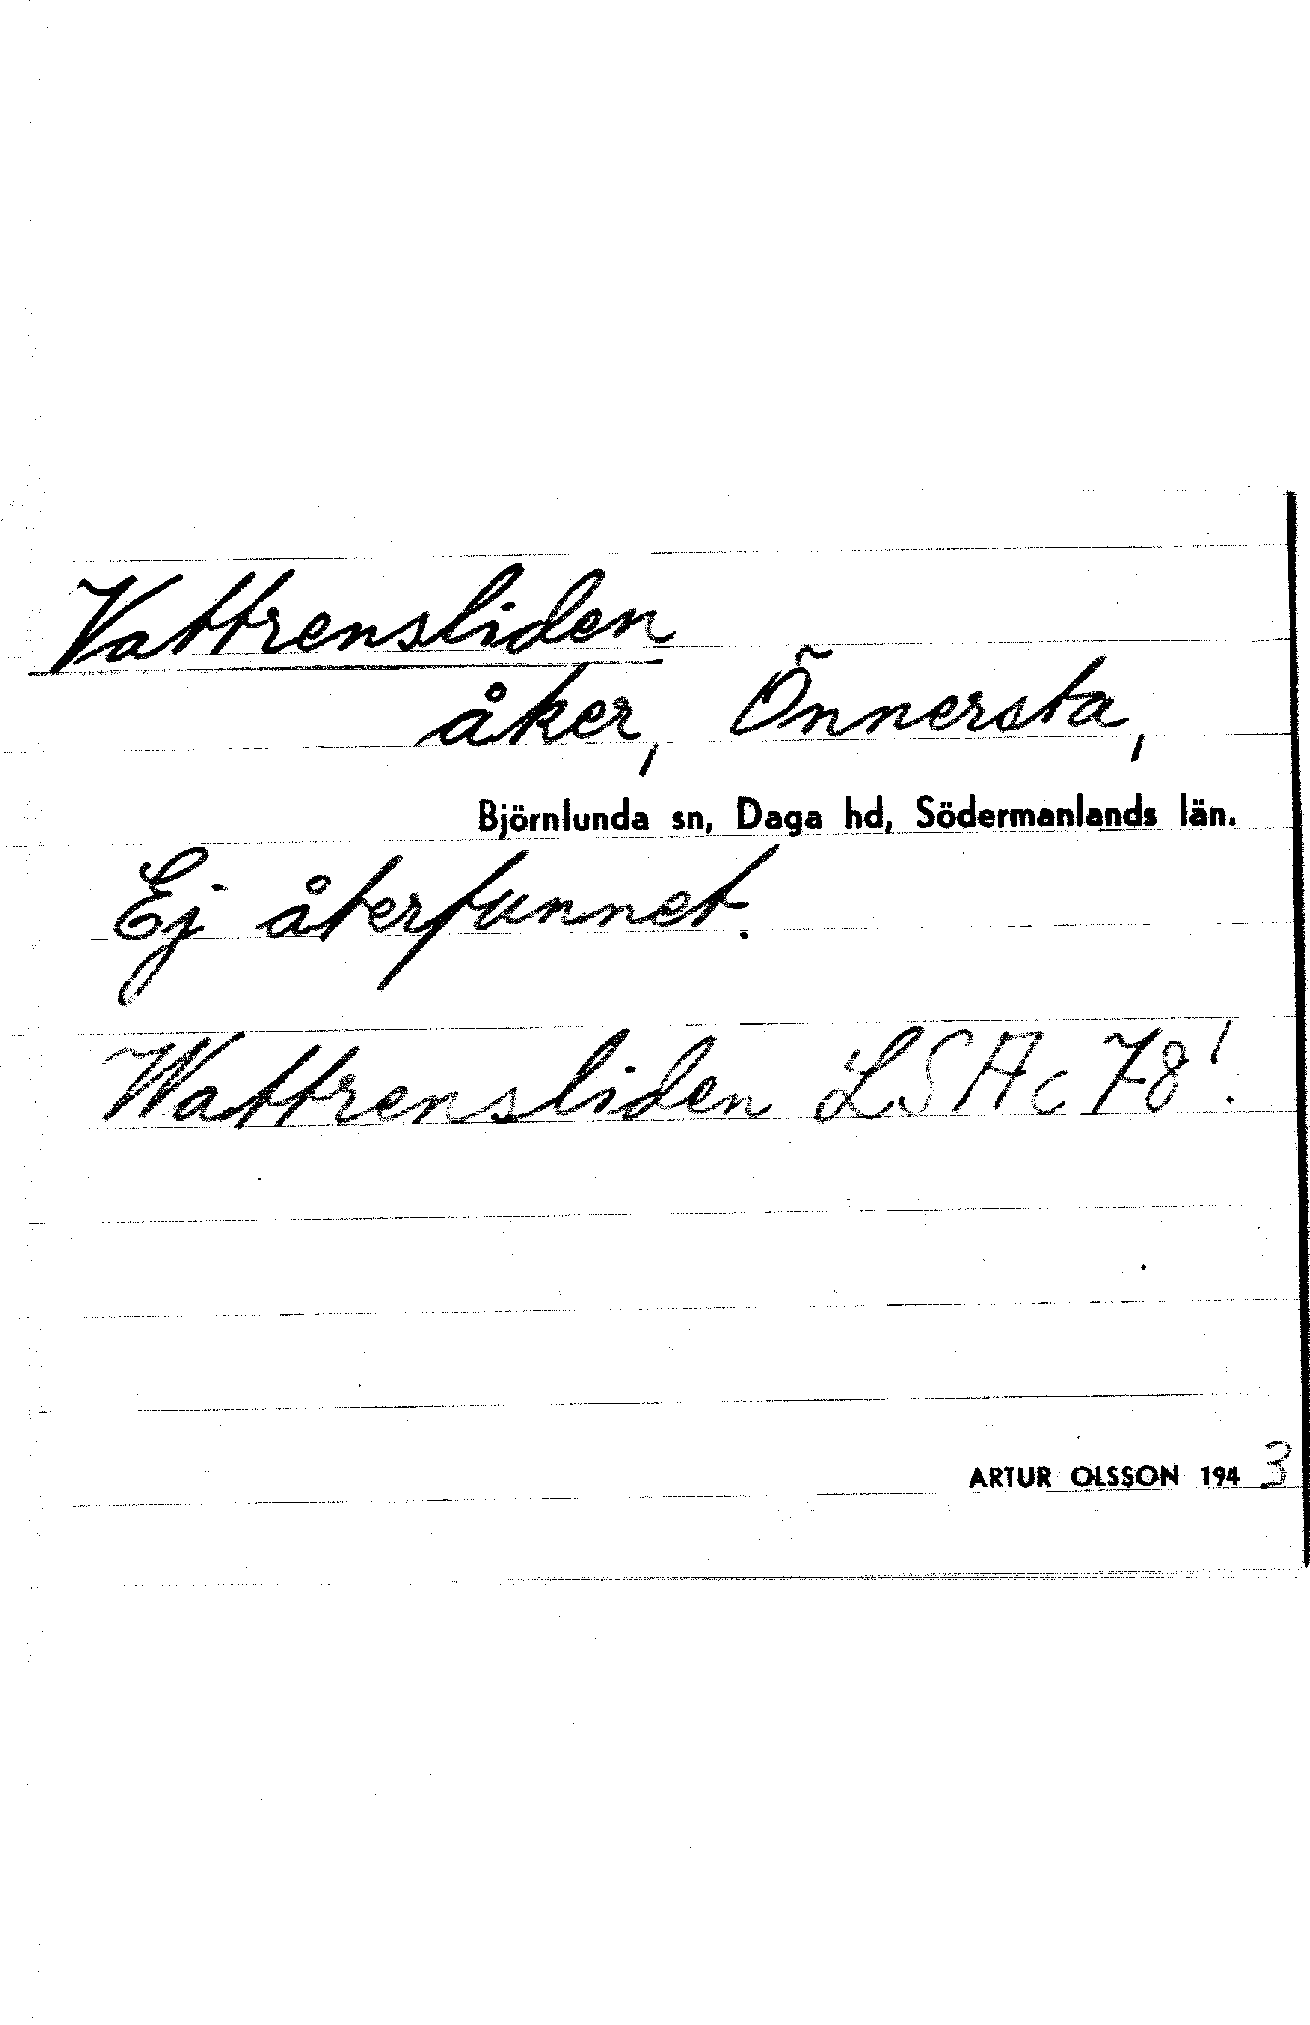 Vattrensliden
åker, Önnersta,
Björnlunda sn, Daga hd, Södermanlands län.
Ej återfunnet.
Wattrensliden LSA c 78!
ARTUR OLSSON 1943